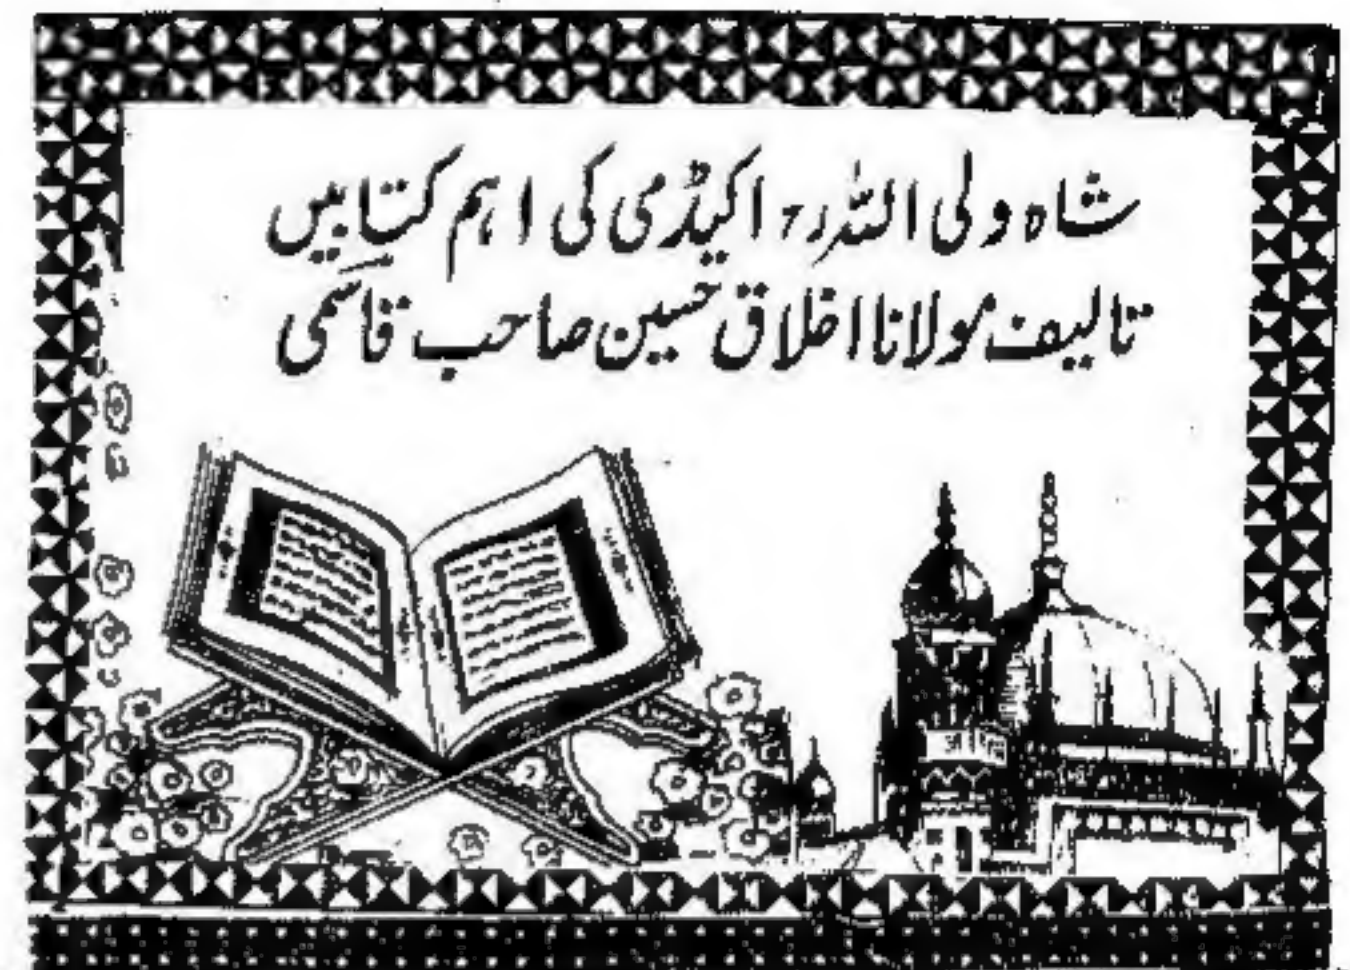 شاہ ولی اللہؒ اکیڈمی کی اہم کتابیں
تالیف مولانا اخلاق حسین صاحب قاسمی